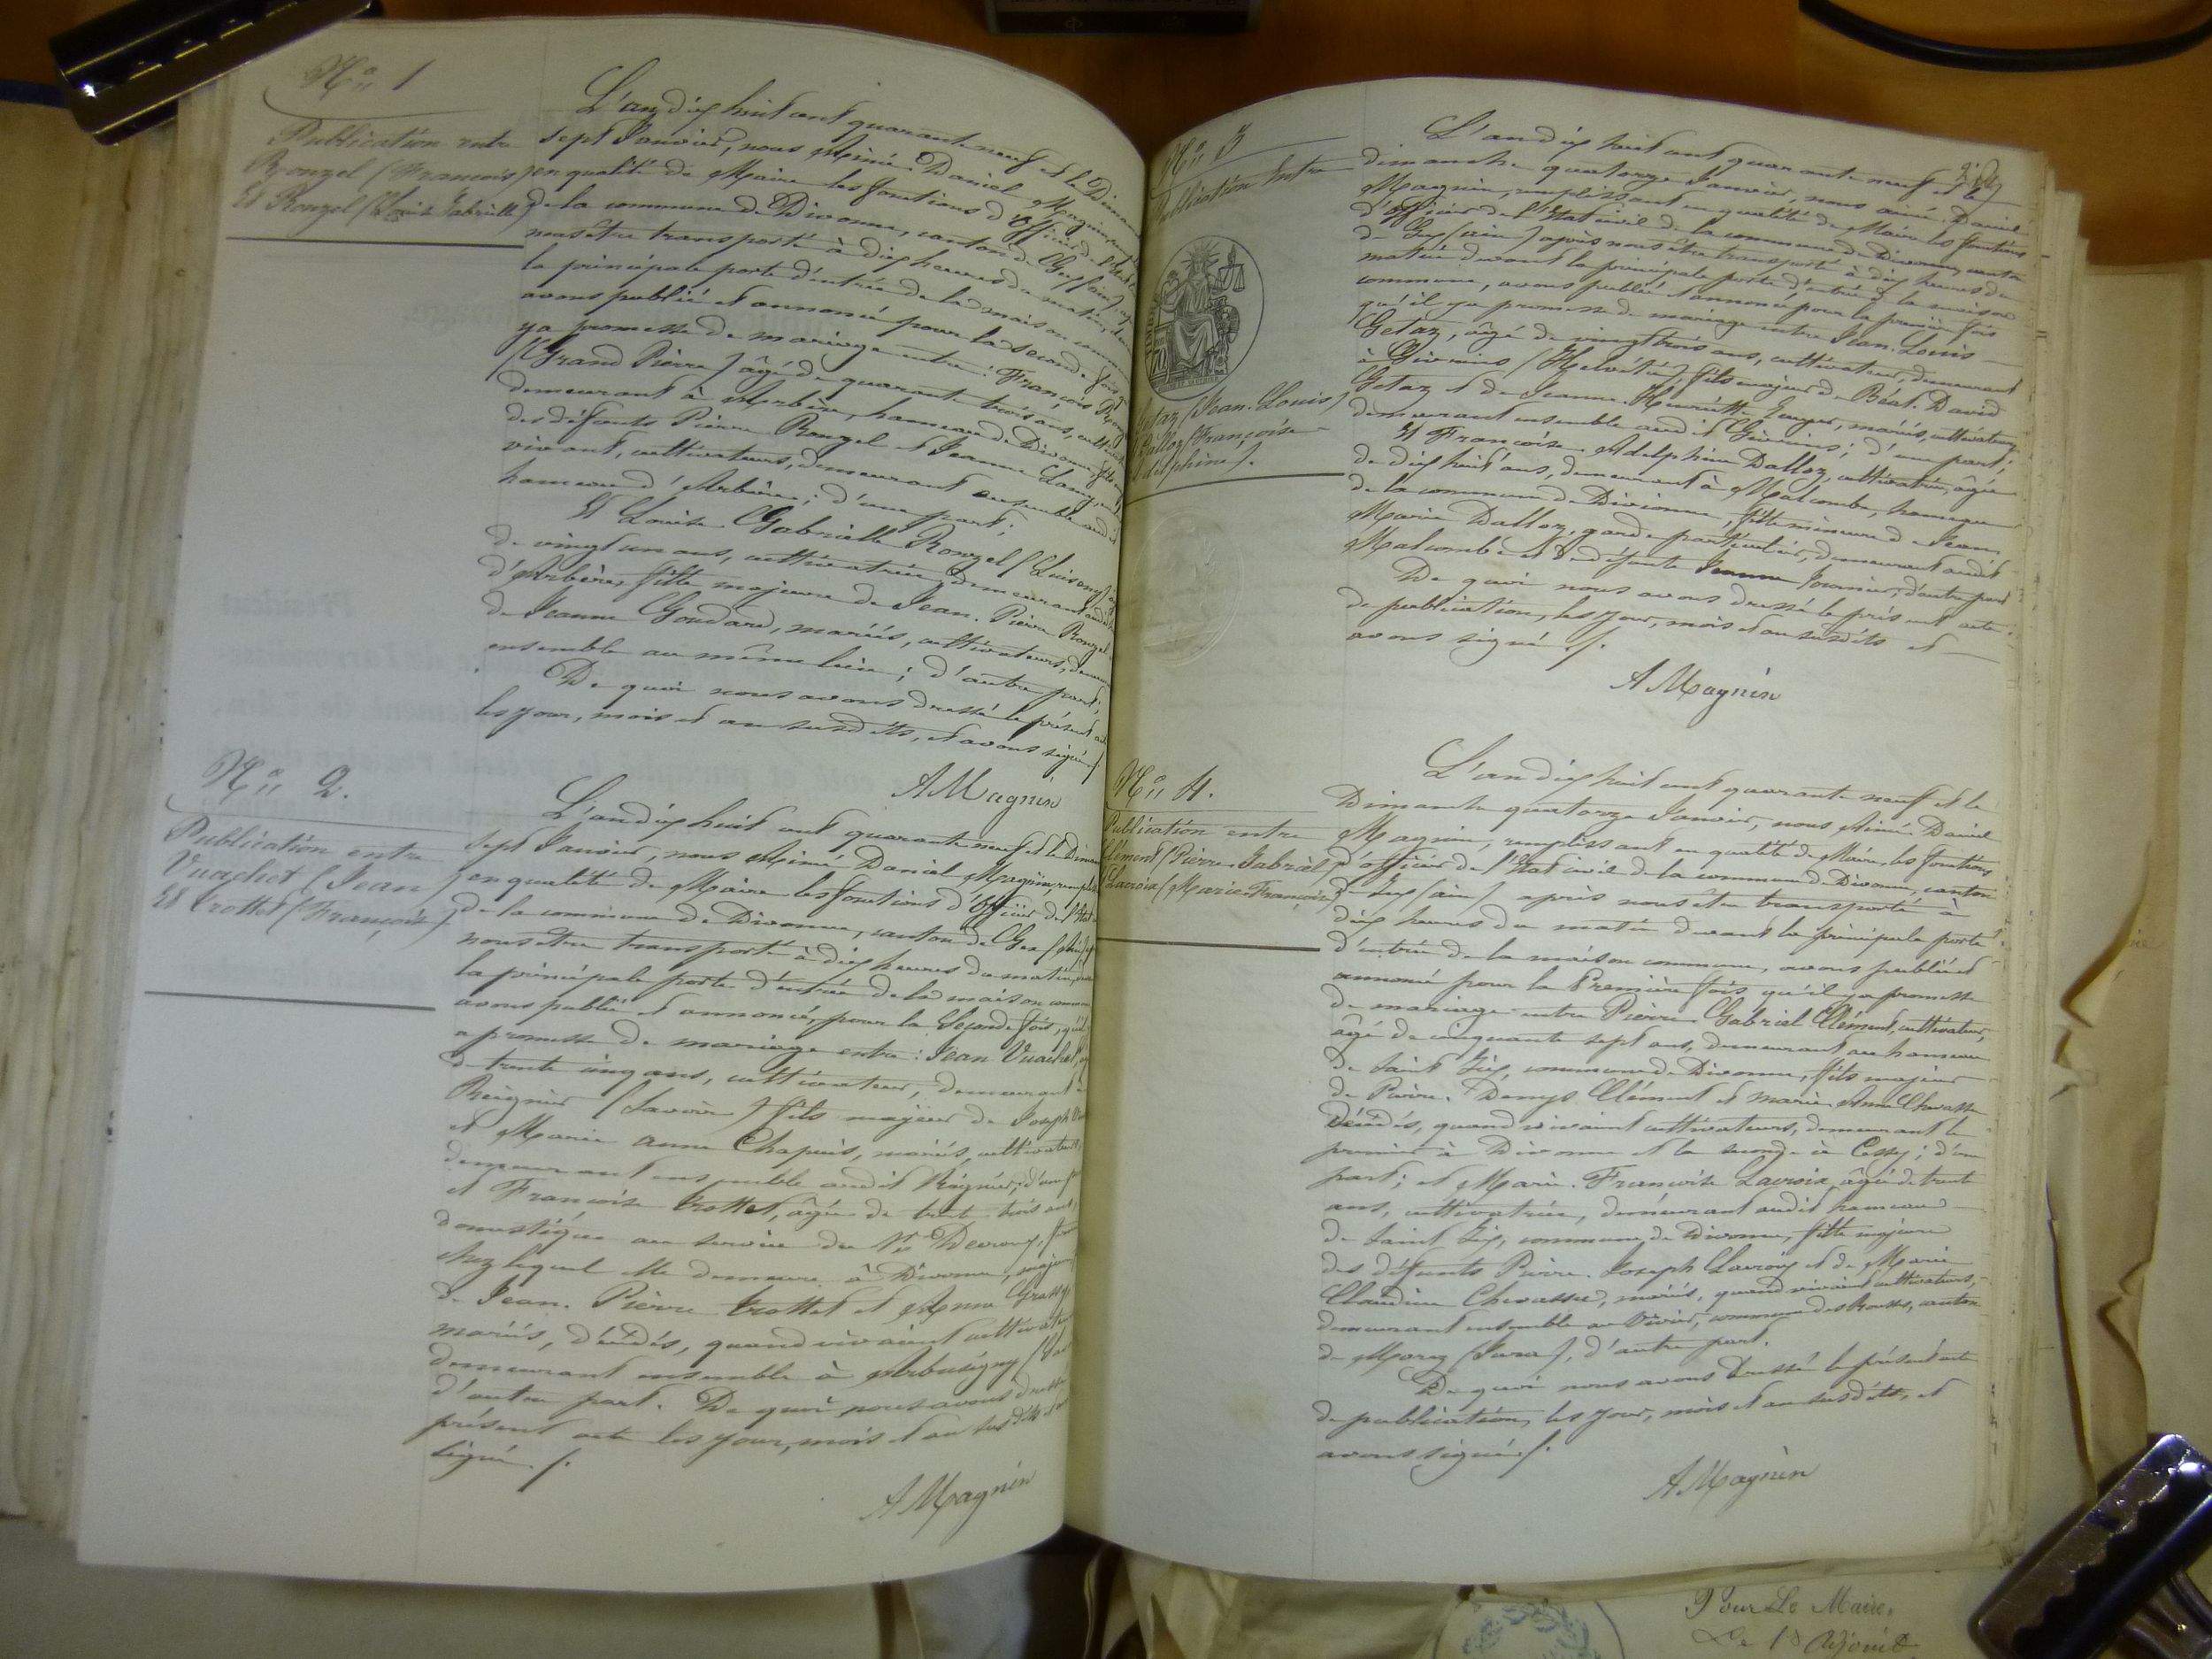 N.° 1
Publication entre
Ronzel (François)
Et Ronzel (Louise Gabrielle)
L'an dix huit cent quarante neuf et le Diman
sept Janvier, nous Aimé Daniel Magnin,
en qualité de Maire les fonctions d'Officier de l'Etat
de la commune de Divonne, canton de Gex (ain)
nous être transporté à dix heures du matin,
la principale porte d'entrée de la maison comm
avons publié et annoncé pour la seconde fois
y a promesse de mariage entre: François
(Grand Pierre) âgé de quarante trois ans,
demeurant à Arbère, hameau de Divonne, fils
des défunts Pierre Ronzel et Jeanne
vivant, cultivateurs, demeurant ensemble audit
hameau d'Arbère; d'une part;
Et Louise Gabrielle Ronzel (Luison)
de vingt un ans, cultivatrice, demeurant
d'Arbère, fille majeure de Jean. Pierre Ronzel
de Jeanne Goudard, mariés, cultivateurs,
ensemble au même lieu; d'autre part;
De quoi nous avons dressé le présent acte
les jour, mois et an susdits, et avons signé
AMagnin
N.° 2.
Publication entre
Vuachet (Jean)
Et Trottet (Françoise)
L'an dix huit cent quarante neuf et le Diman
sept Janvier, nous Aimé Daniel Magnin
en qualité de Maire les fonctions d'Officier de l'Etat
de la commune de Divonne, canton de Gex
nous être transporté à dix heures du matin,
la principale porte d'entrée de la maison commune
avons publié et annoncé, pour la Seconde fois, qu'il
a promesse de mariage entre: Jean Vuachet,
de trente cinq ans, cultivateur, demeurant à
Reignier (Savoie) fils majeur de Joseph
et Marie Anne Chapuis, mariés, cultivateurs,
demeurant ensemble audit Reignier; d'une part
et Françoise Trottet, âgée de trente trois ans,
domestique au service du Sr
chez lequel elle demeure à Divonne, majeure
de Jean. Pierre Trottet et Anne
mariés, décédés, quand vivaient cultivateurs
demeurant ensemble à Arbusigny
d'autre part. De quoi nous avons dressé
présent acte les jour, mois et an susdits et
signé ./.
AMagnin
N.° 3
Publication Entre
Getaz (Jean. Louis)
Dalloz (Françoise
Adelphine).
L'an dix huit cent quarante neuf et le
dimanche quatorze Janvier, nous aimé. Daniel
Magnin, remplissant en qualité de Maire les fonctions
d'Officier de l'Etat civil de la commune de Divonne, canton
de Gex (ain) après nous être transporté à dix heures du
matin devant la principale porte d'entrée de la maison
commune, avons publié et annoncé pour la première fois
qu'il y a promesse de mariage entre Jean. Louis
Getaz, âgé de vingt trois ans, cultivateur, demeurant
à Givrins (Helvétie) fils majeur de Béat. David
Getaz et de Jeanne. Henriette, mariés, cultivateurs
demeurant ensemble audit Givrins; d'une part;
Et Françoise. Adelphine Dalloz, cultivatrice, âgée
de dix huit ans, demeurant à Malcombe, hameau
de la commune de Divonne, fille mineure de Jean
Marie Dalloz, garde particulier, demeurant audit
Malcombe et de défunte Jeanne, d'autre part
De quoi nous avons dressé le présent acte
de publication, les jour, mois et an susdits et
avons signé ./.
AMagnin
N.° 4.
Publication entre
Clément (Pierre. Gabriel)
Lacroix (Marie Françoise)
L'an dix huit cent quarante neuf et le
Dimanche quatorze Janvier, nous Aimé. Daniel
Magnin, remplissant en qualité de Maire, les fonctions
d'officier de l'Etat civil de la commune de Divonne, canton
de Gex (ain) après nous être transporté à
dix heures du matin devant la principale porte
d'entrée de la maison commune, avons publié et
annoncé pour la Première fois, qu'il y a promesse
de mariage entre Pierre. Gabriel Clément, cultivateur,
âgé de cinquante sept ans, demeurant au hameau
de Saint Gix, commune de Divonne, fils majeur
de Pierre. Denys Clément et marie Anne Chavasse
décédés, quand vivaient cultivateurs, demeurant le
premier à Divonne et la seconde à Cessy; d'une
part; et Marie. Françoise Lacroix âgée de trente
ans, cultivatrice, demeurant audit hameau
de Saint Gix, commune de Divonne, fille majeure
des défunts Pierre. Joseph Lacroix et de Marie
Claudine Chevassus, mariés, quand vivaient cultivateurs,
demeurant ensemble au, commune des Rousses, canton
de Morez (Jura), d'autre part.
De quoi nous avons Dressé le présent acte
de publication, les jour, mois et an susdits, et
avons signé ./.
AMagnin
Pour Le Maire,
Le 1er Adjoint